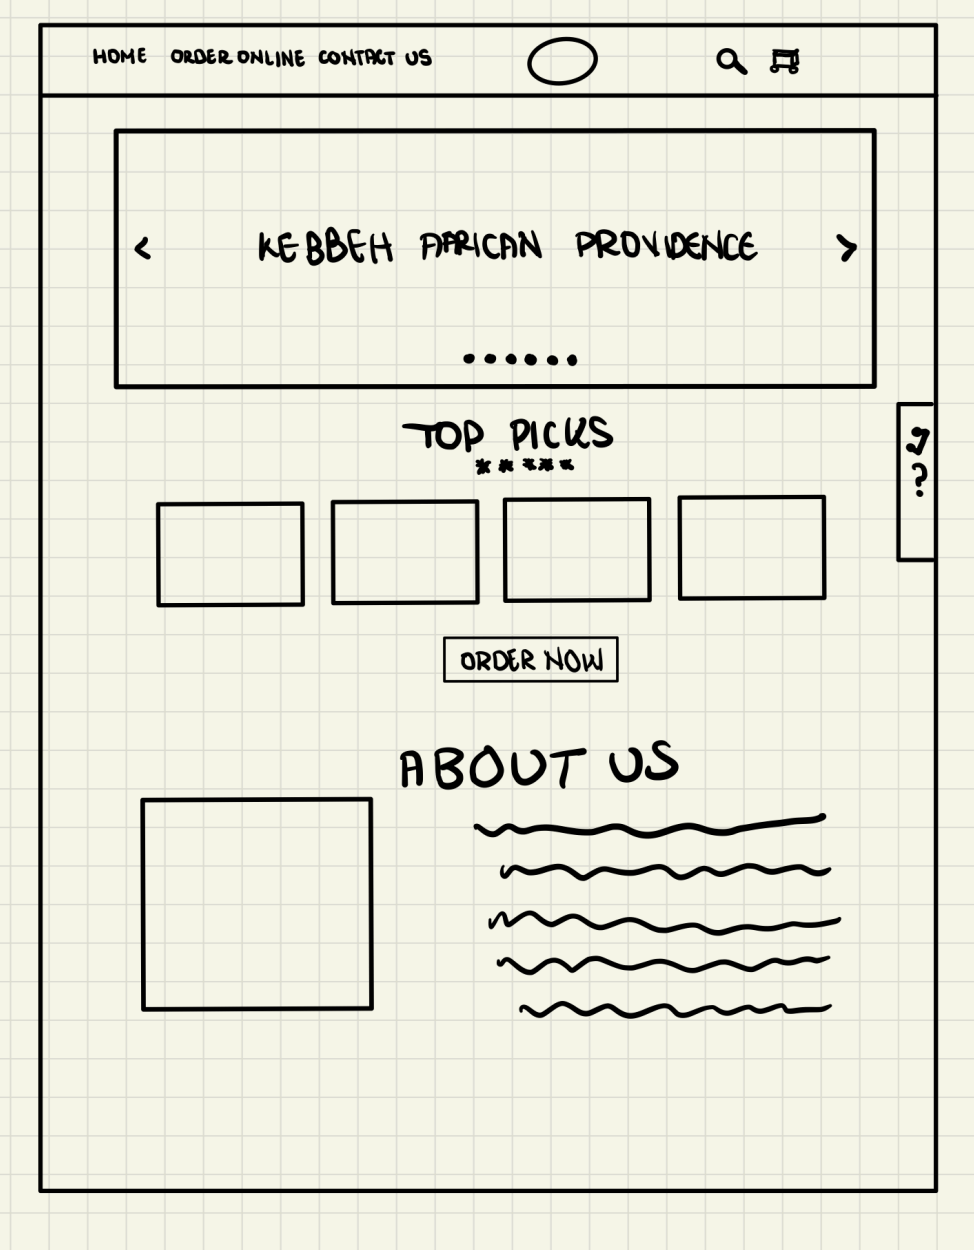 HOME ORDER ONLINE CONTACT US
< KEBBEH AFRICAN PROVIDENCE >
TOP PICKS
*****
?
ORDER NOW
ABOUT US